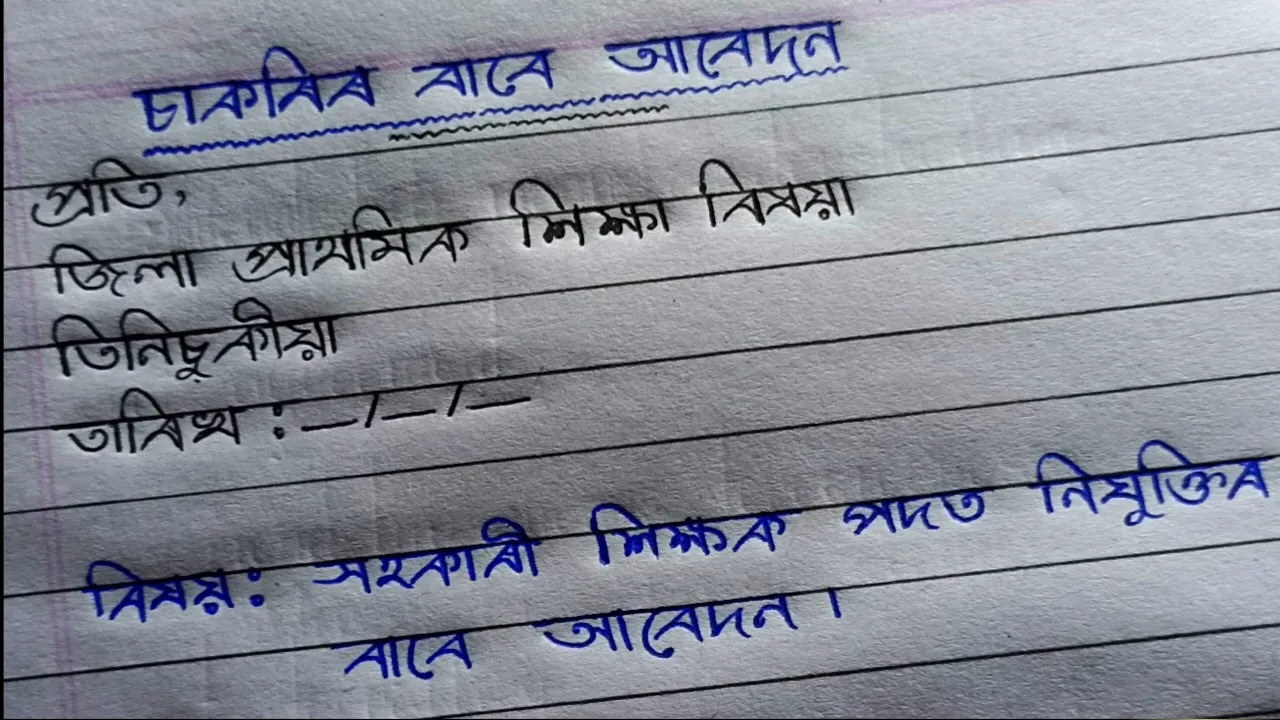 চাকৰিৰ বাবে আবেদন
প্ৰতি,
জিলা প্ৰাথমিক শিক্ষা বিষয়া
তিনিচুকীয়া
তাৰিখ :_/_/_
বিষয়: সহকাৰী শিক্ষক পদত নিযুক্তিৰ
বাবে আবেদন।